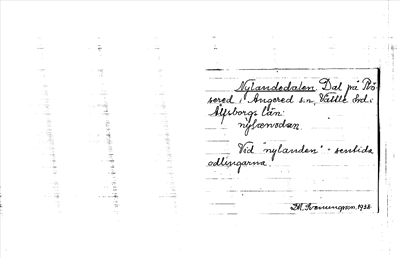 Nylandsdalen. Dal på Rö-
sered i Angered s:n, Vättle hd i
Älfsborgs län.
nylænsdan
Vid "nylanden" - sentida
odlingarna.
1932